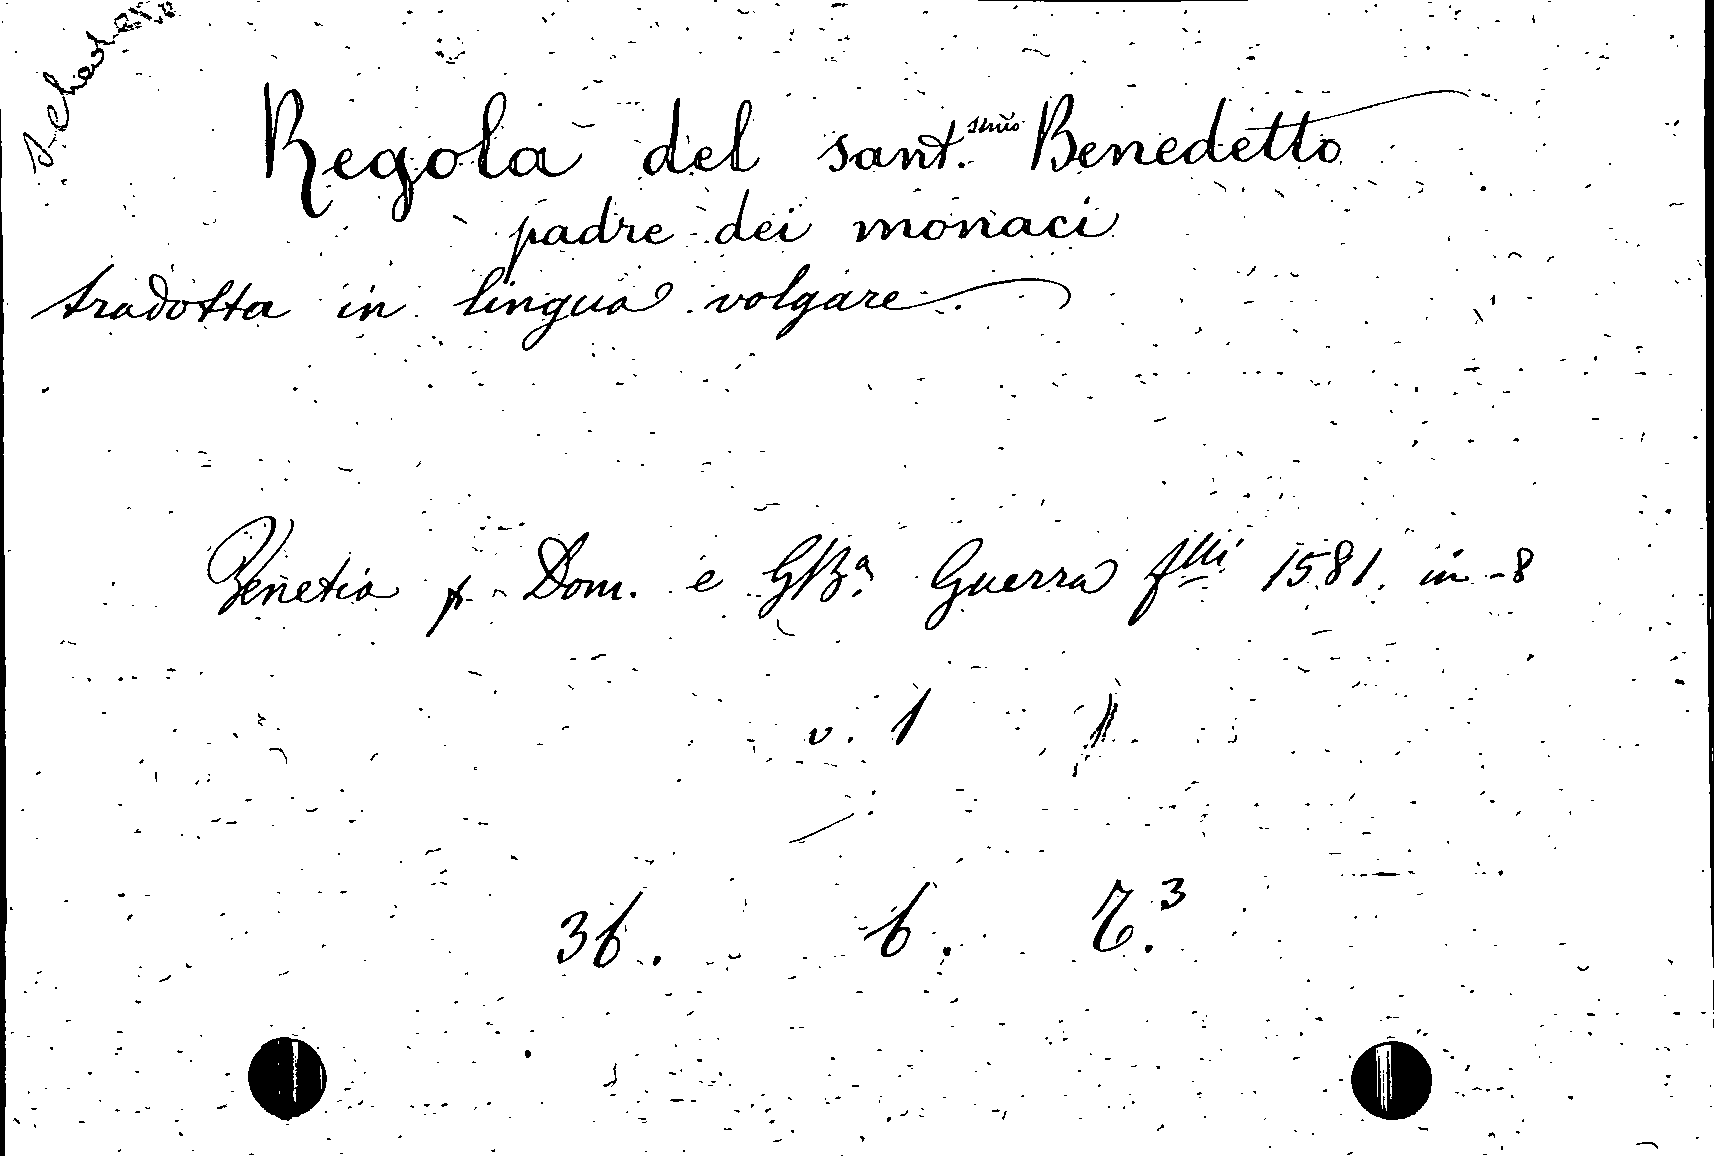 Regola del sant.smo Benedetto
padre dei monaci
tradotta in lingua volgare.
Venetia p. Dom. e GBa. Guerra flli 1581. in-8
v. 1
36. b. 7.3